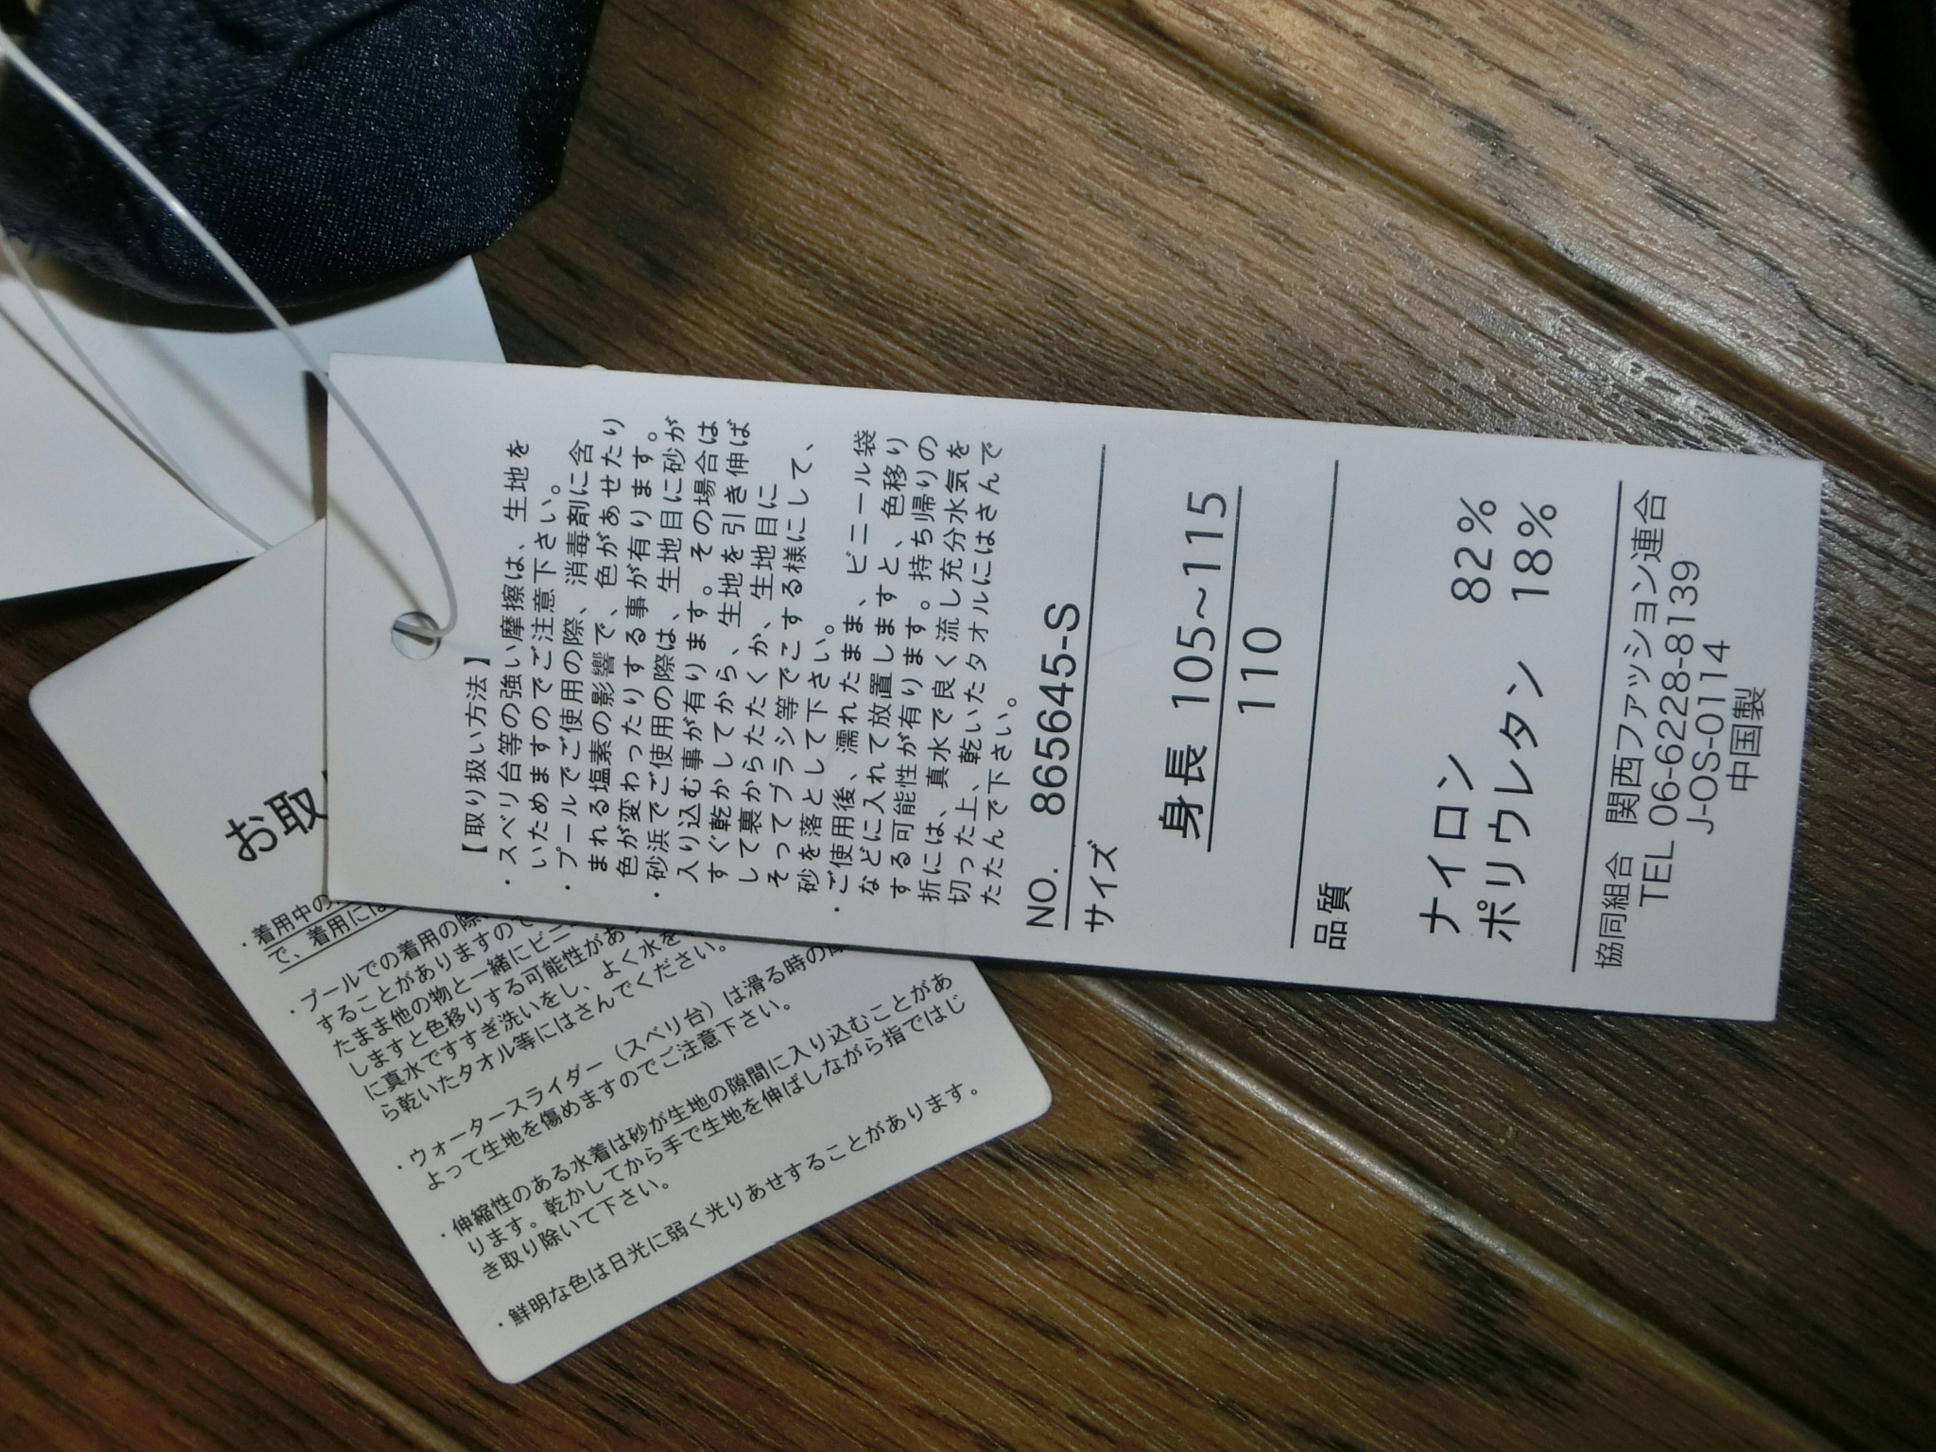 【取り扱い方法】
・スベリ台等の強い摩擦は、生地を
いためますのでご注意下さい。
・プールでご使用の際、消毒剤に含
まれる塩素の影響で、色があせたり
色が変わったりする事が有ります。
・砂浜でご使用の際は、生地目に砂が
入り込む事が有ります。その場合は
すぐ乾かしてから、生地を引き伸ば
して裏からたたくか、生地目に
そってブラシ等でこする様にして、
砂を落として下さい。
・ご使用後、濡れたまま、ビニール袋
などに入れて放置しますと、色移り
する可能性が有ります。持ち帰りの
折には、真水で良く流し充分水気を
切った上、乾いたタオルにはさんで
たたんで下さい。
NO. 865645-S
サイズ
身長 105~115
110
品質
ナイロン 82%
ポリウレタン 18%
協同組合 関西ファッション連合
TEL 06-6228-8139
J-OS-0114
中国製
お取
・着用中の
で、着用には
・プールでの着用の際
することがありますので
たまま他の物と一緒にビニ
しますと色移りする可能性があ
に真水ですすぎ洗いをし、よく水を
ら乾いたタオル等にはさんでください。
・ウォータースライダー（スベリ台）は滑る時の
よって生地を傷めますのでご注意下さい。
・伸縮性のある水着は砂が生地の隙間に入り込むことがあ
ります。乾かしてから手で生地を伸ばしながら指ではじ
き取り除いて下さい。
・鮮明な色は日光に弱く光りあせすることがあります。